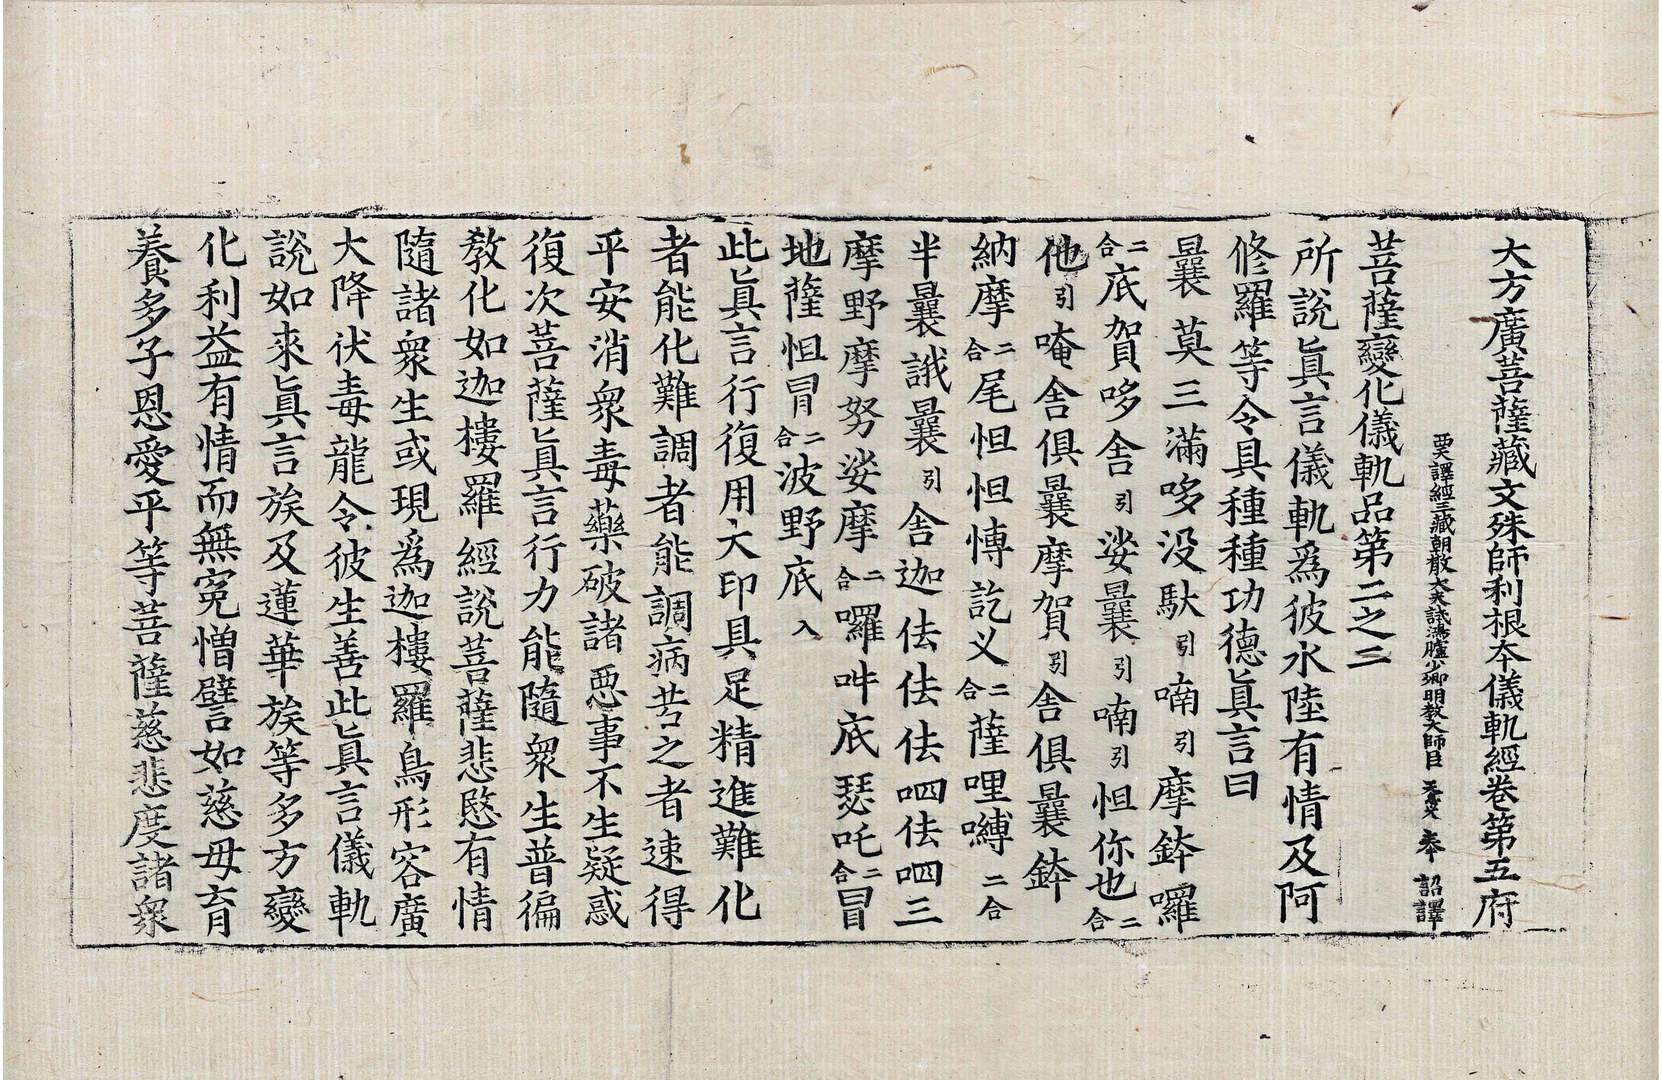 大方廣菩薩藏文殊師利根本儀軌經卷第五府
西天譯經三藏朝散大夫試鴻臚少卿明教大師臣天息災奉 詔譯
菩薩變化儀軌品第二之二
所說眞言儀軌爲彼水陸有情及阿
修羅等令具種種功德眞言曰
曩莫三滿哆没馱引喃引摩鉢囉
二合底賀哆舍引娑曩引喃引怛你也二合
他引唵舍俱曩摩賀引舍俱曩鉢
納摩二合尾怛怛愽訖叉二合薩哩嚩二合
半曩誐曩引舍迦佉佉佉呬佉呬三
摩野摩努娑摩二合囉吽底瑟吒二合冒
地薩怛冒二合波野底入
此眞言行復用大印具足精進難化
者能化難調者能調病苦之者速得
平安消衆毒藥破諸惡事不生疑惑
復次菩薩眞言行力能隨衆生普徧
教化如迦樓羅經說菩薩悲愍有情
隨諸衆生或現爲迦樓羅鳥形容廣
大降伏毒龍令彼生善此眞言儀軌
說如來眞言族及蓮華族等多方變
化利益有情而無冤憎譬如慈母育
養多子恩愛平等菩薩慈悲度諸衆